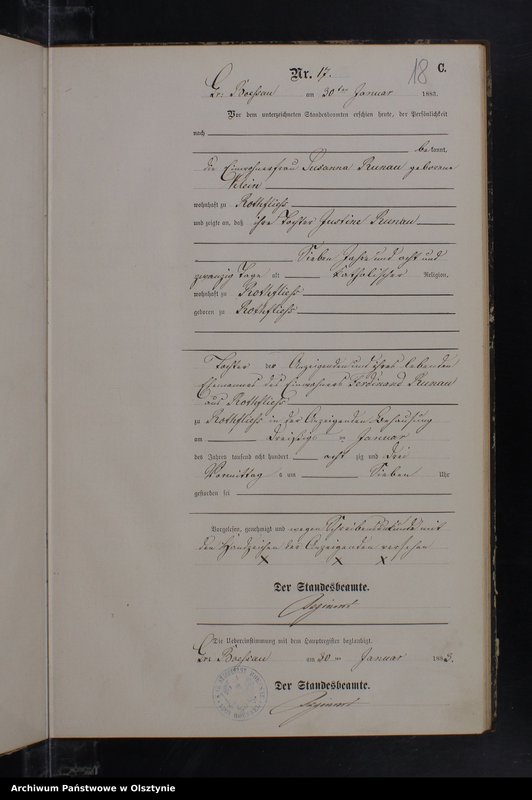 18
C.
Nr. 17.
Gr. Boessau am 30ten Januar 1883.
Vor dem unterzeichneten Standesbeamten erschien heute, der Persönlichkeit
nach
bekannt,
die Einwohnerfrau Susanna Runau geborene
Klein
wohnhaft zu Rothfliess
und zeigte an, daß ihre Tochter Justine Runau
Sieben Jahre und acht und
zwanzig Tage alt katholischer Religion,
wohnhaft zu Rothfliess
geboren zu Rothfliess
Tochter der Anzeigenden und ihres lebenden
Ehemannes des Einwohners Ferdinand Runau
aus Rothfliess
zu Rothfliess in der Anzeigenden Behausung
am dreißigsten Januar
des Jahres tausend acht hundert achtzig und drei
Vormittags um Sieben Uhr
gestorben sei
Vorgelesen, genehmigt und wegen Schreibensunkunde mit
den Handzeichen der Anzeigenden versehen
X X X
Der Standesbeamte.
Die Uebereinstimmung mit dem Hauptregister beglaubigt.
Gr. Boessau am 30ten Januar 1883.
Der Standesbeamte.
Archiwum Państwowe w Olsztynie